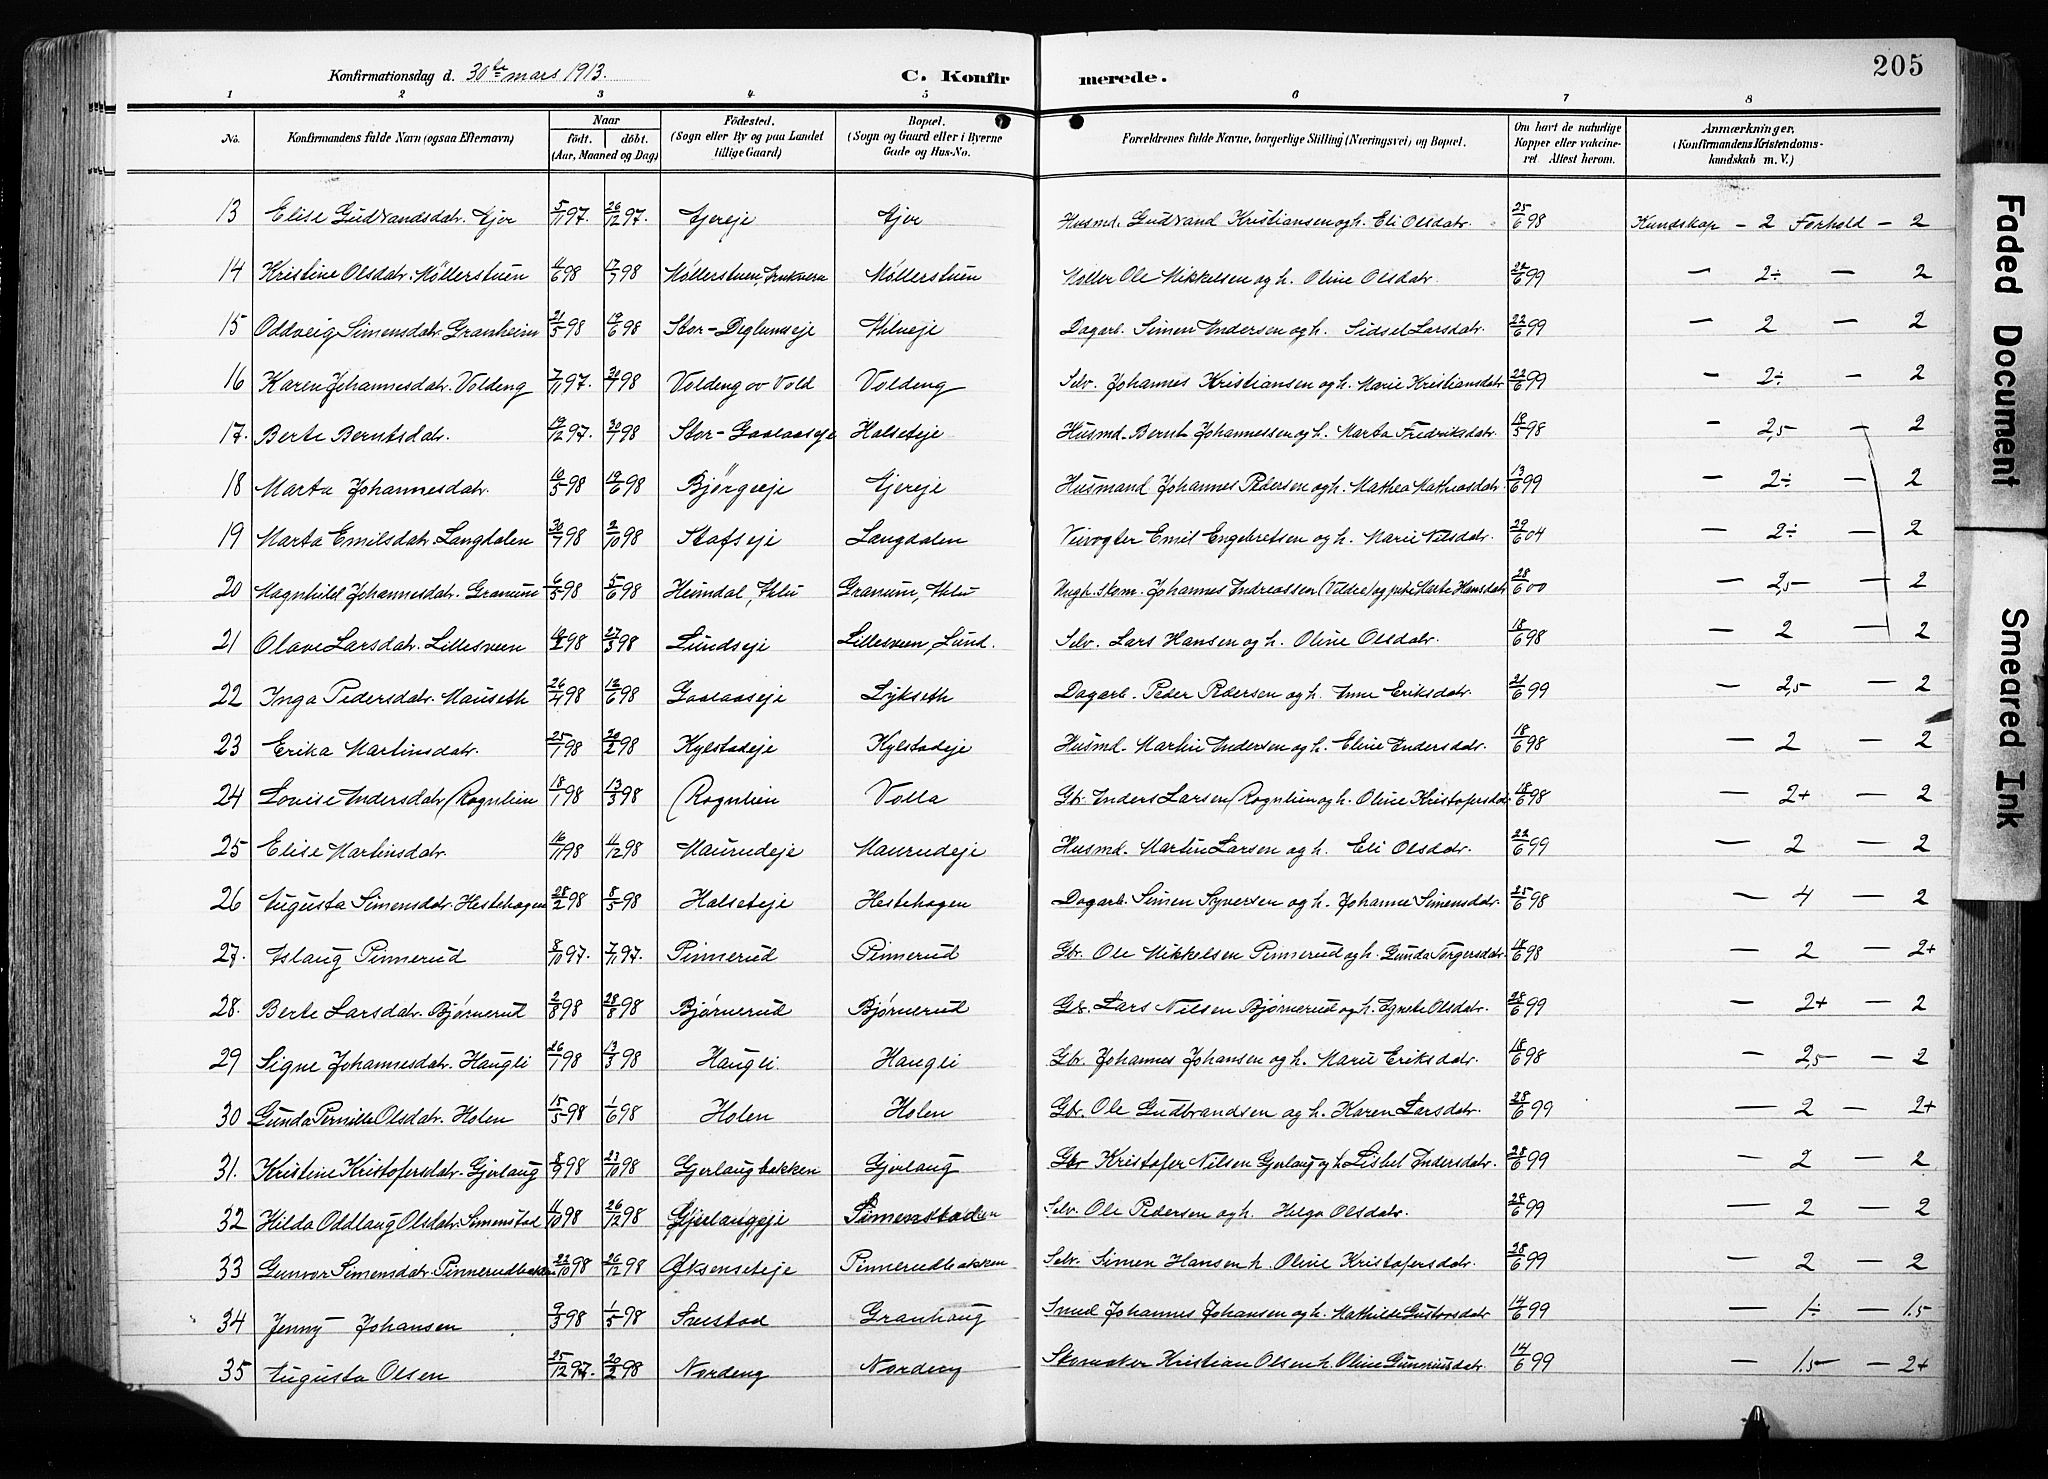 Konfirmationsdag d. 30te mars 1913. C. Konfirmerede. 205
1 2 3 4 5 6 7 8
No. Konfirmandens fulde Navn (ogsaa Efternavn) Naar født. døbt. (Aar, Maaned og Dag) Fødested. (Sogn eller By og paa Landet tillige Gaard) Bopæl. (Sogn og Gaard eller i Byerne Gade og Hus-No. Forældrenes fulde Navne, borgerlige Stilling (Næringsvei) og Bopæl. Om havt de naturlige Kopper eller vakcineret. Attest herom. Anmærkninger. (Konfirmandens Kristendomskundskab m. V.)
13 Elise Gudrandsdatr. Ajer 5/11 97. 26/12 97. Ajereje Ajer Husmd. Gudrand Kristiansen og h. Eli Olsdatr. 25/6 98 Kundskap - 2 Forhold - 2
14 Kristine Olsdatr. Møllerstuen 4/6 98 17/7 98 Møllerstuen, Møllerstuen Møller Ole Mikkelsen og h. Oline Olsdatr. 22/6 99 - 2÷ - 2
15 Oddveig Simensdatr. Granheim 21/5 98 19/6 98 Stor-Deglumseje Alueje Dagarb. Simen Andersen og h. Sidsel Larsdatr. 22/6 99 - 2 - 2
16 Karen Johannesdatr. Voldeng 7/11 97. 30/1 98 Voldeng ov Vold Voldeng Selv. Johannes Kristiansen og h. Marie Kristiansdatr 22/6 99 - 2÷ - 2
17. Berte Berntsdatr. 19/12 97. 30/1 98 Stor-Gaalaaseje Halseteje Husmd. Bernt Johannessen og h. Marta Fredriksdatr. 19/5 98 - 2,5 - 2
18 Marta Johannesdatr. 16/5 98 19/6 98 Bjørgeeje Ajereje Husmand Johannes Pedersen og h. Mathea Mathiasdatr. 13/6 99 - 2÷ - 2
19 Marta Emilsdatr. Langdalen 30/7 98 2/10 98 Stafseje Langdalen Veivogter Emil Engebretsen og h. Marie Nilsdatr. 29/6 04 - 2÷ - 2
20 Magnhild Johannesdatr. Granum 6/5 98 5/6 98 Heimdal, Alu Granum, Alu Ungk. Skom. Johannes Andreassen (Vildee) og pike Marte Hansdatr 28/6 00 - 2,5 - 2
21 Olave Larsdatr. Lillesveen 27/3 98 Lundseje Lillesveen, Lund. Selv. Lars Hansen og h. Oline Olsdatr. 18/6 98 - 2 - 2
22 Inga Pedersdatr. Mauseth 26/4 98 12/6 98 Gaalaaseje Lykseth Dagarb. Peder Pedersen og h. Anne Eriksdatr. 21/6 99 - 2,5 - 2
23 Erika Martinsdatr. 25/1 98 20/2 98 Kylstadeje Kylstadeje Husmd. Martin Andersen og h. Eline Andersdatr. 18/6 98 - 2 - 2
24 Lovise Andersdatr Rognlien 18/1 98 13/3 98 Rognlien Volla Gbr. Anders Larsen Rognlien og h. Oline Kristofersdatr 18/6 98 - 2+ - 2
25 Elise Martinsdatr. 16/11 98 4/12 98 Maurudeje Maurudeje Husmd. Martin Larsen og h. Eli Olsdatr. 22/6 99 - 2 - 2
26 Augusta Simensdatr. Hestehagen 28/2 98 8/5 98 Halseteje Hestehagen Dagarb. Simen Syversen og h. Johanne Simensdatr. 25/6 98 - 4 - 2
27. Aslaug Pinnerud 8/10 97. 7/11 97. Pinnerud Pinnerud Gbr. Ole Mikkelsen Pinnerud og h. Gunda Torgersdatr. 18/6 98 - 2 - 2+
28. Berte Larsdatr. Bjørnerud 2/8 98 28/8 98 Bjørnerud Bjørnerud Gb. Lars Nilsen Bjørnerud og h. Agnete Olsdatr. 28/6 99 - 2+ - 2
29 Signe Johannesdatr. Haugli 26/1 98 13/3 98 Haugli. Haugli Gbr. Johannes Johansen og h. Marie Eriksdatr. 18/6 98 - 2,5 - 2
30 Gunda Pernille Olsdatr. Holen 15/5 98 1/6 98 Holen Holen Gbr. Ole Gudbrandsen og h. Karen Larsdatr. 28/6 99 - 2 - 2+
31. Kristine Kristofersdatr. Gjerlaug 8/9 98 23/10 98 Gjerlaugbakken Gjerlaug Gbr Kristofer Nilsen Gjerlaug og h. Lisbet Andersdatr. 28/6 99 - 2 - 2
32 Hilda Oddlaug Olsdatr. Simenstad 4/10 98 26/12 98 Gjerlaugeje Simenstaden Selv. Ole Pedersen og h. Helga Olsdatr. 28/6 99 - 2 - 2
33 Gunvor Simensdatr. Pinnerudbakken 22/10 98 26/12 98 Øksenseteje Pinnerudbakken Selv. Simen Hansen h. Oline Kristofersdatr. 28/6 99 - 2 - 2
34 Jenny Johansen 9/3 98 1/5 98 Svestad Granhaug Smed Johannes Johansen og h. Mathilde Gustavsdatr 14/6 99 - 1÷ - 1.5
35 Augusta Olsen 25/12 97. 20/2 98 Nordeng Nordeng Skomaker Kristian Olsen h. Oline Gunniusdatr. 14/6 99 - 1.5 - 2+
Faded Document
Smeared Ink